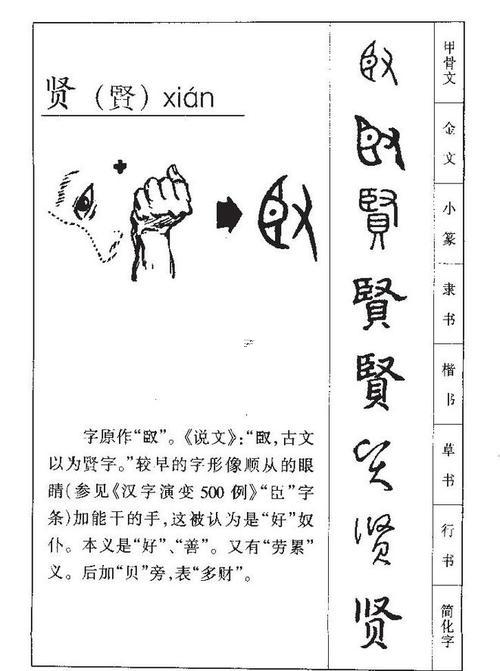 贤（賢）xián
字原作“臤”。《说文》：“臤，古文
以为贤字。”较早的字形像顺从的眼
睛（参见《汉字演变500例》“臣”字
条）加能干的手，这被认为是“好”奴
仆。本义是“好”、“善”。又有“劳累”
义。后加“贝”旁，表“多财”。
臤
臤 甲骨文
臤 金文
賢 小篆
賢 隶书
賢 楷书
贤 草书
贤 行书
贤 简化字